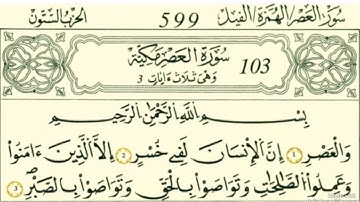 سُورَةُ الْعَصْرِ الْهُمَزَةِ الْفِيلِ 599 الحِزْبُ السِّتُّونَ
سُورَةُ الْعَصْرِ مَكِّيَّةٌ 103
وَهْىَ ثَلَاثُ ءَايَاتٍ 3
بِسْمِ اللَّهِ الرَّحْمَٰنِ الرَّحِيمِ
وَالْعَصْرِ 1 إِنَّ الْإِنسَانَ لَفِے خُسْرٍ 2 إِلَّا الَّذِينَ ءَامَنُوا
وَعَمِلُوا الصَّالِحَاتِ وَتَوَاصَوْا بِالْحَقِّ وَتَوَاصَوْا بِالصَّبْرِ 3